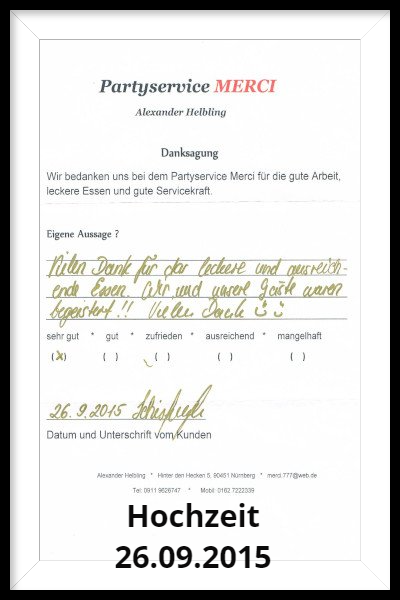 Partyservice MERCI
Alexander Helbling
Danksagung
Wir bedanken uns bei dem Partyservice Merci für die gute Arbeit,
leckere Essen und gute Servicekraft.
Eigene Aussage ?
Vielen Dank für das leckere und ausreich-
ende Essen. Wir und unsere Gäste waren
begeistert!! Vielen Dank
sehr gut * gut * zufrieden * ausreichend * mangelhaft
(X) ( ) ( ) ( ) ( )
26.9.2015
Datum und Unterschrift vom Kunden
Alexander Helbling * Hinter den Hecken 5, 90451 Nürnberg * merci.777@web.de
Tel: 0911 9626747 * Mobil 0162 7222339
Hochzeit
26.09.2015